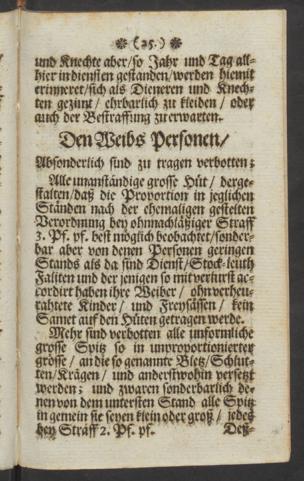 ✽ (25.) ✽
und Knechte aber/so Jahr und Tag all-
hier in diensten gestanden/werden hiemit
erinneret/sich als Dieneren und Knech-
ten gezimt / ehrbarlich zu kleiden / oder
auch der Bestraffung zu erwarten.
Den Weibs Personen/
Absonderlich sind zu tragen verbotten:
Alle unanständige grosse Hüt / derge-
stalten/daß die Proportion in jeglichen
Ständen nach der ehemaligen gestelten
Verordnung bey ohnnachläßiger Straff
3. Pf. pf. best möglich beobachtet/sonder-
bar aber von denen Personen geringen
Stands als da sind Dienst/Stock-leuth
Faliten und der jenigen so mit verkurst ac-
cordirt haben ihre Weiber / ohnverheu-
rahtete Kinder / und Freysässen / kein
Samet auf den Hüten getragen werde.
Mehr sind verbotten alle unförmliche
grosse Spitz so in unproportionierter
grösse / an die so genannte Bletz/Schlut-
ten/Krägen / und anderstwohin versetzt
werden: und zwaren sonderbarlich de-
nen von dem untersten Stand alle Spitz
in gemein sie seyen klein oder groß / jedes
bey Straff 2. Pf. pf.